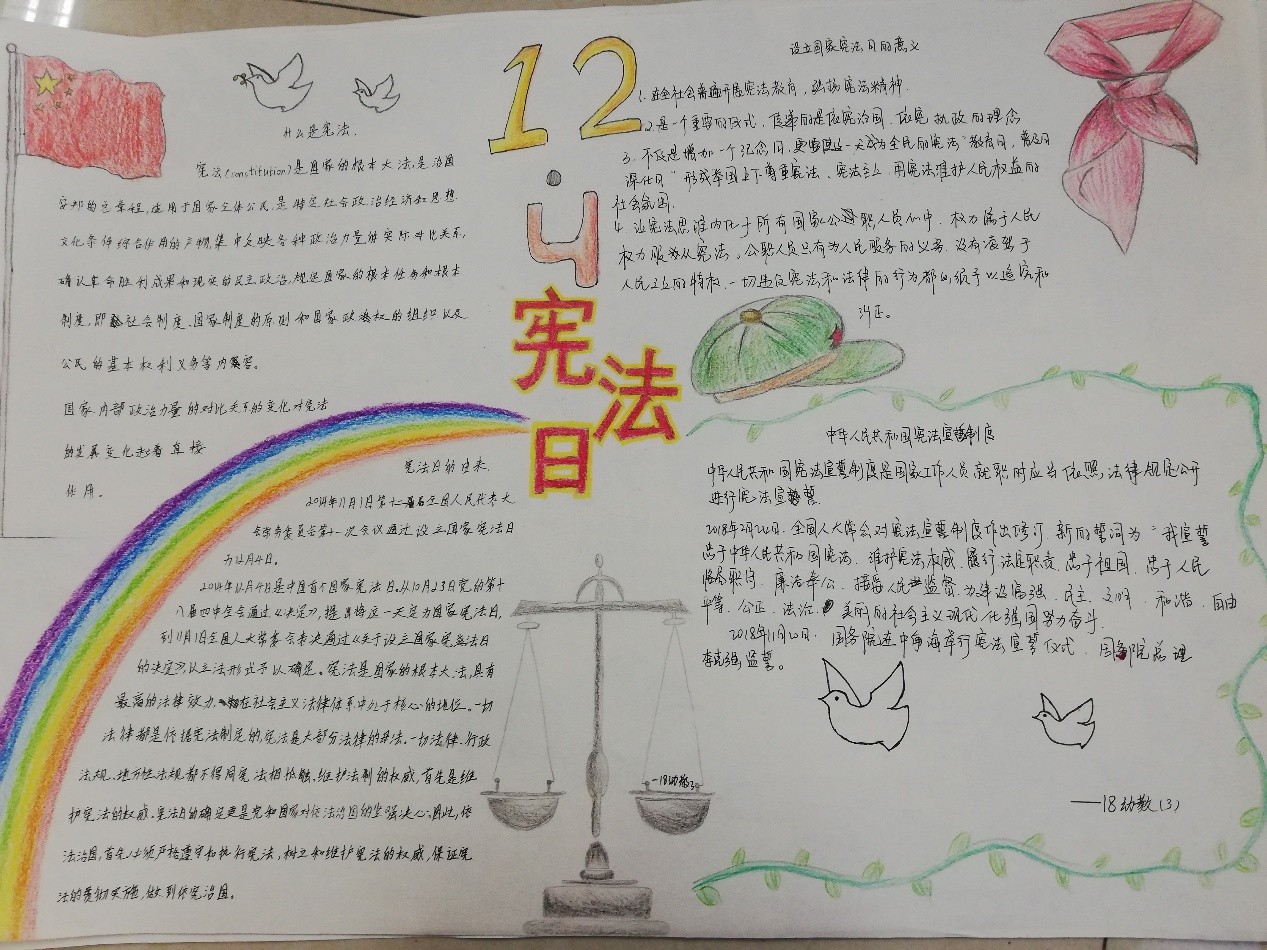 12
·4
宪法日
什么是宪法.
宪法(constitution)是国家的根本大法,是治国
安邦的总章程,适用于国家全体公民,是特定社会政治经济和思想
文化条件综合作用的产物,集中反映各种政治力量的实际对比关系,
确认革命胜利成果和现实的民主政治,规定国家的根本任务和根本
制度,即社会制度、国家制度的原则和国家政权的组织以及
公民的基本权利义务等内容。
国家内部政治力量的对比关系的变化对宪法
的发展变化起着直接
作用。
宪法日的由来.
2014年11月1日第十二届全国人民代表大
会常务委员会第十一次会议通过设立国家宪法日
为12月4日。
2014年12月4日是中国首个国家宪法日,从10月23日党的第十
八届四中全会通过《决定》,提出将这一天定为国家宪法日,
到11月1日全国人大常委会表决通过《关于设立国家宪法日
的决定》,以立法形式予以确定。宪法是国家的根本大法,具有
最高的法律效力,在社会主义法律体系中处于核心的地位。一切
法律都是依据宪法制定的,宪法是大部分法律的母法。一切法律、行政
法规、地方性法规都不得同宪法相抵触、维护法制的权威,首先是维
护宪法的权威.宪法日的确定更是党和国家对依法治国的坚强决心;因此,依
法治国,首先必须严格遵守和执行宪法,树立和维护宪法的权威,保证宪
法的贯彻实施,做到依宪治国。
设立国家宪法日的意义
1.在全社会普遍开展宪法教育,弘扬宪法精神.
2.是一个重要的仪式,传递的是依宪治国、依宪执政的理念
3.不仅是增加一个纪念日,更要使这一天成为全民的宪法"教育日,普及日
深化日"形成举国上下尊重宪法、宪法至上、用宪法维护人民权益的
社会氛围.
4.让宪法思维内化于所有国家公职人员心中.权力属于人民
权力服从宪法。公职人员只有为人民服务的义务,没有凌驾于
人民之上的特权,一切违反宪法和法律的行为都必须予以追究和
纠正。
中华人民共和国宪法宣誓制度
中华人民共和国宪法宣誓制度是国家工作人员就职时应当依照法律规定公开
进行宪法宣誓.
2018年2月24日.全国人大常会对宪法宣誓制度作出修订.新的誓词为"我宣誓
忠于中华人民共和国宪法,维护宪法权威,履行法定职责,忠于祖国、忠于人民
恪尽职守、廉洁奉公,接受人民监督,为建设富强、民主、文明、和谐、自由
平等、公正、法治、美丽的社会主义现代化强国努力奋斗.
2018年11月20日.国务院在中南海举行宪法宣誓仪式.国务院总理
李克强监誓。
—18幼教3
——18幼教(3)